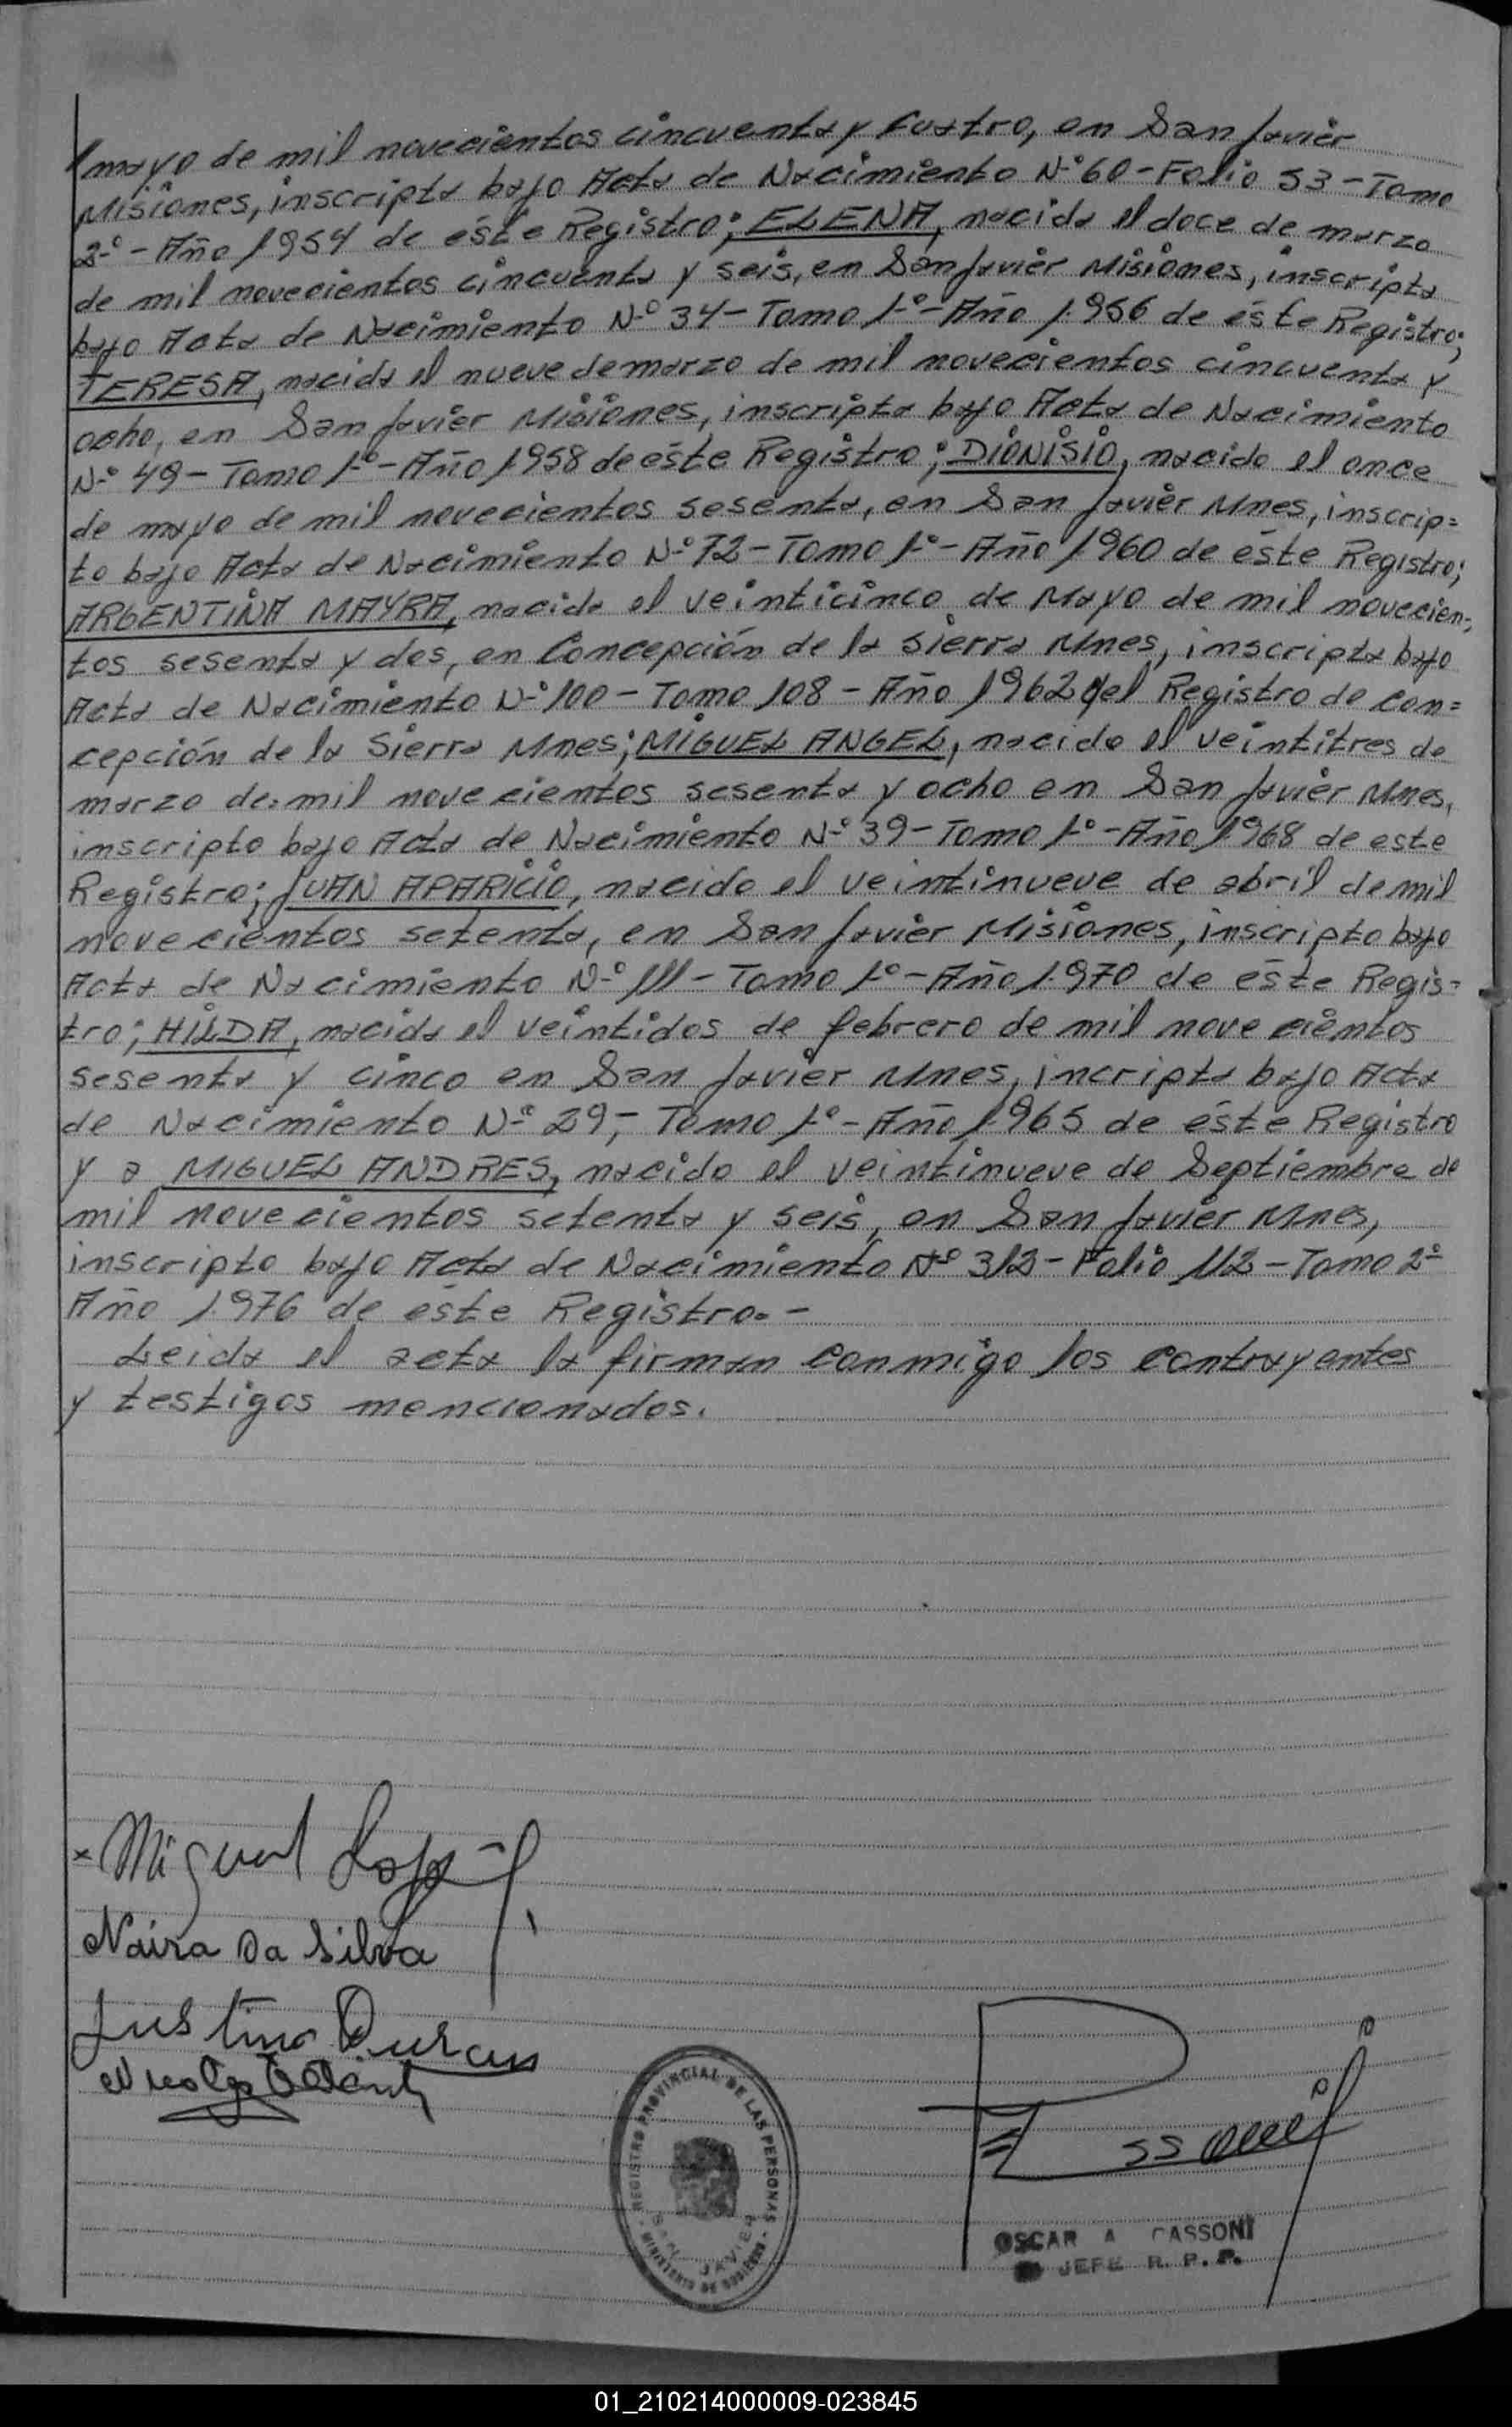 mayo de mil novecientos cincuenta y cuatro, en San Javier
Misiones, inscripta bajo Acta de Nacimiento N-º 60 - Folio 53 - Tomo
2-º - Año 1954 de éste Registro; ELENA, nacida el doce de marzo
de mil novecientos cincuenta y seis, en San Javier Misiones, inscripta
bajo Acta de Nacimiento N-º 34 - Tomo 1-º - Año 1.956 de éste Registro;
TERESA, nacida el nueve de marzo de mil novecientos cincuenta y
ocho, en San Javier Misiones, inscripta bajo Acta de Nacimiento
N-º 49 - Tomo 1-º - Año 1958 de éste Registro; DIONISIO, nacido el once
de mayo de mil novecientos sesenta, en San Javier Mnes, inscrip=
to bajo Acta de Nacimiento N-º 72 - Tomo 1-º - Año 1960 de éste Registro;
ARGENTINA MAYRA, nacida el veinticinco de Mayo de mil novecien=
tos sesenta y dos, en Concepción de la Sierra Mnes, inscripta bajo
Acta de Nacimiento N-º 100 - Tomo 108 - Año 1962 del Registro de Con=
cepción de la Sierra Mnes; MIGUEL ANGEL, nacido el veintitres de
marzo de mil novecientos sesenta y ocho en San Javier Mnes,
inscripto bajo Acta de Nacimiento N-º 39 - Tomo 1-º - Año 1968 de este
Registro; JUAN APARICIO, nacido el veintinueve de abril de mil
novecientos setenta, en San Javier Misiones, inscripto bajo
Acta de Nacimiento N-º 111 - Tomo 1-º - Año 1.970 de éste Regis=
tro; HILDA, nacida el veintidos de febrero de mil novecientos
sesenta y cinco en San Javier Mnes, incripta bajo Acta
de Nacimiento N-º 29, - Tomo 1-º - Año 1965 de éste Registro
y a MIGUEL ANDRES, nacido el veintinueve de Septiembre de
mil novecientos setenta y seis, en San Javier Mnes,
inscripto bajo Acta de Nacimiento Nº 312 - Folio 112 - Tomo 2º
Año 1.976 de éste Registro. -
Leida el acta la firman conmigo los contrayentes
y testigos mencionados.
Miguel Lopez
Naira Da Silva
Justino Duran
REGISTRO PROVINCIAL DE LAS PERSONAS
SAN JAVIER
MINISTERIO DE GOBIERNO
OSCAR A CASSONI
JEFE R. P. P.
01_210214000009-023845